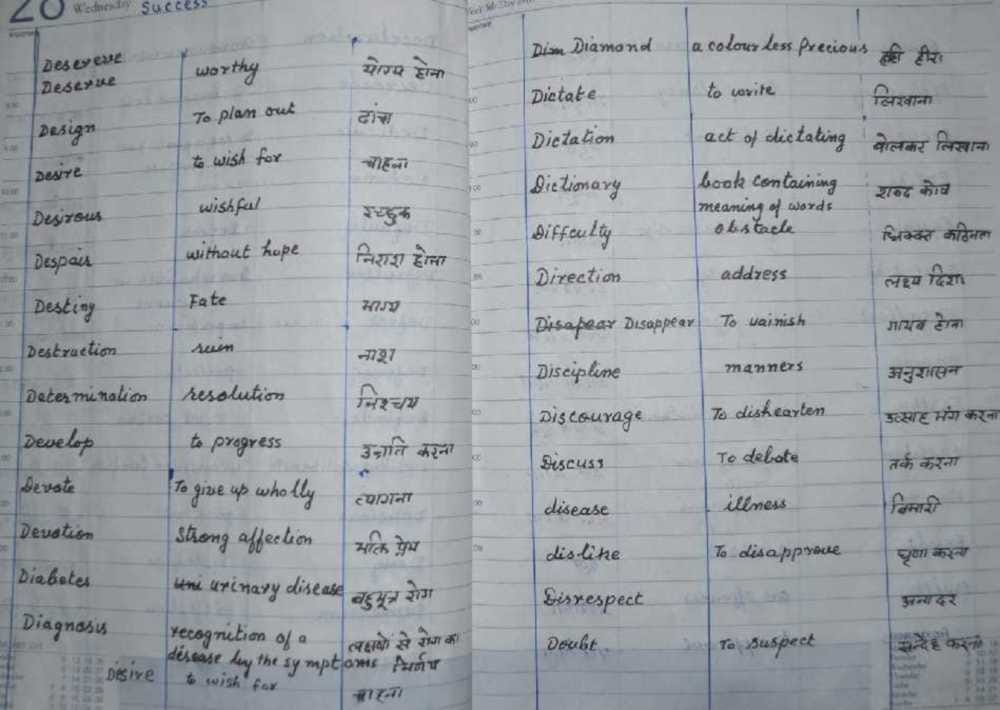 28 Wednesday Success
Desereve
Deserve worthy योग्य होना
Design To plan out ढांचा
Desire to wish for चाहना
Desirous wishful इच्छुक
Despair without hope निराश होना
Destiny Fate भाग्य
Destruction ruin नाश
Determination resolution निश्चय
Develop to progress उन्नति करना
Devote To give up wholly त्यागना
Devotion Strong affection भक्ति प्रेम
Diabetes uni urinary disease बहुमूत्र रोग
Diagnosis recognition of a लक्षणों से रोग का
disease by the symptoms निर्णय
Desire to wish for चाहना
Dim Diamond a colourless Precious हीरा
Dictate to write लिखाना
Dictation act of dictating बोलकर लिखाना
Dictionary book containing शब्द कोष
meaning of words
Difficulty obstacle कठिनता
Direction address लक्ष्य दिशा
Disapear Disappear To vainish गायब होना
Discipline manners अनुशासन
Discourage To dishearten उत्साह भंग करना
Discuss To debate तर्क करना
disease illness बिमारी
dislike To disapprove घृणा करना
Disrespect
Doubt To suspect सन्देह करना